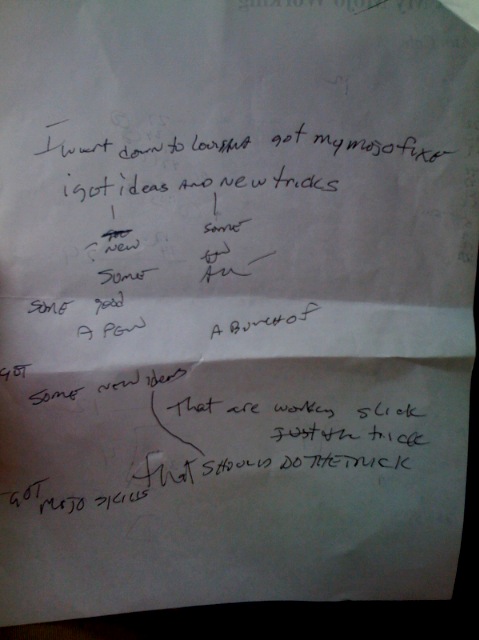 My Mojo Working
I went down to got my mojo fixed
i got ideas and new tricks
new some
some
some good
A few A Bunch of
GOT
some new ideas
That are working slick
just the trick
that SHOULD DO THE TRICK
GOT
mojo skills